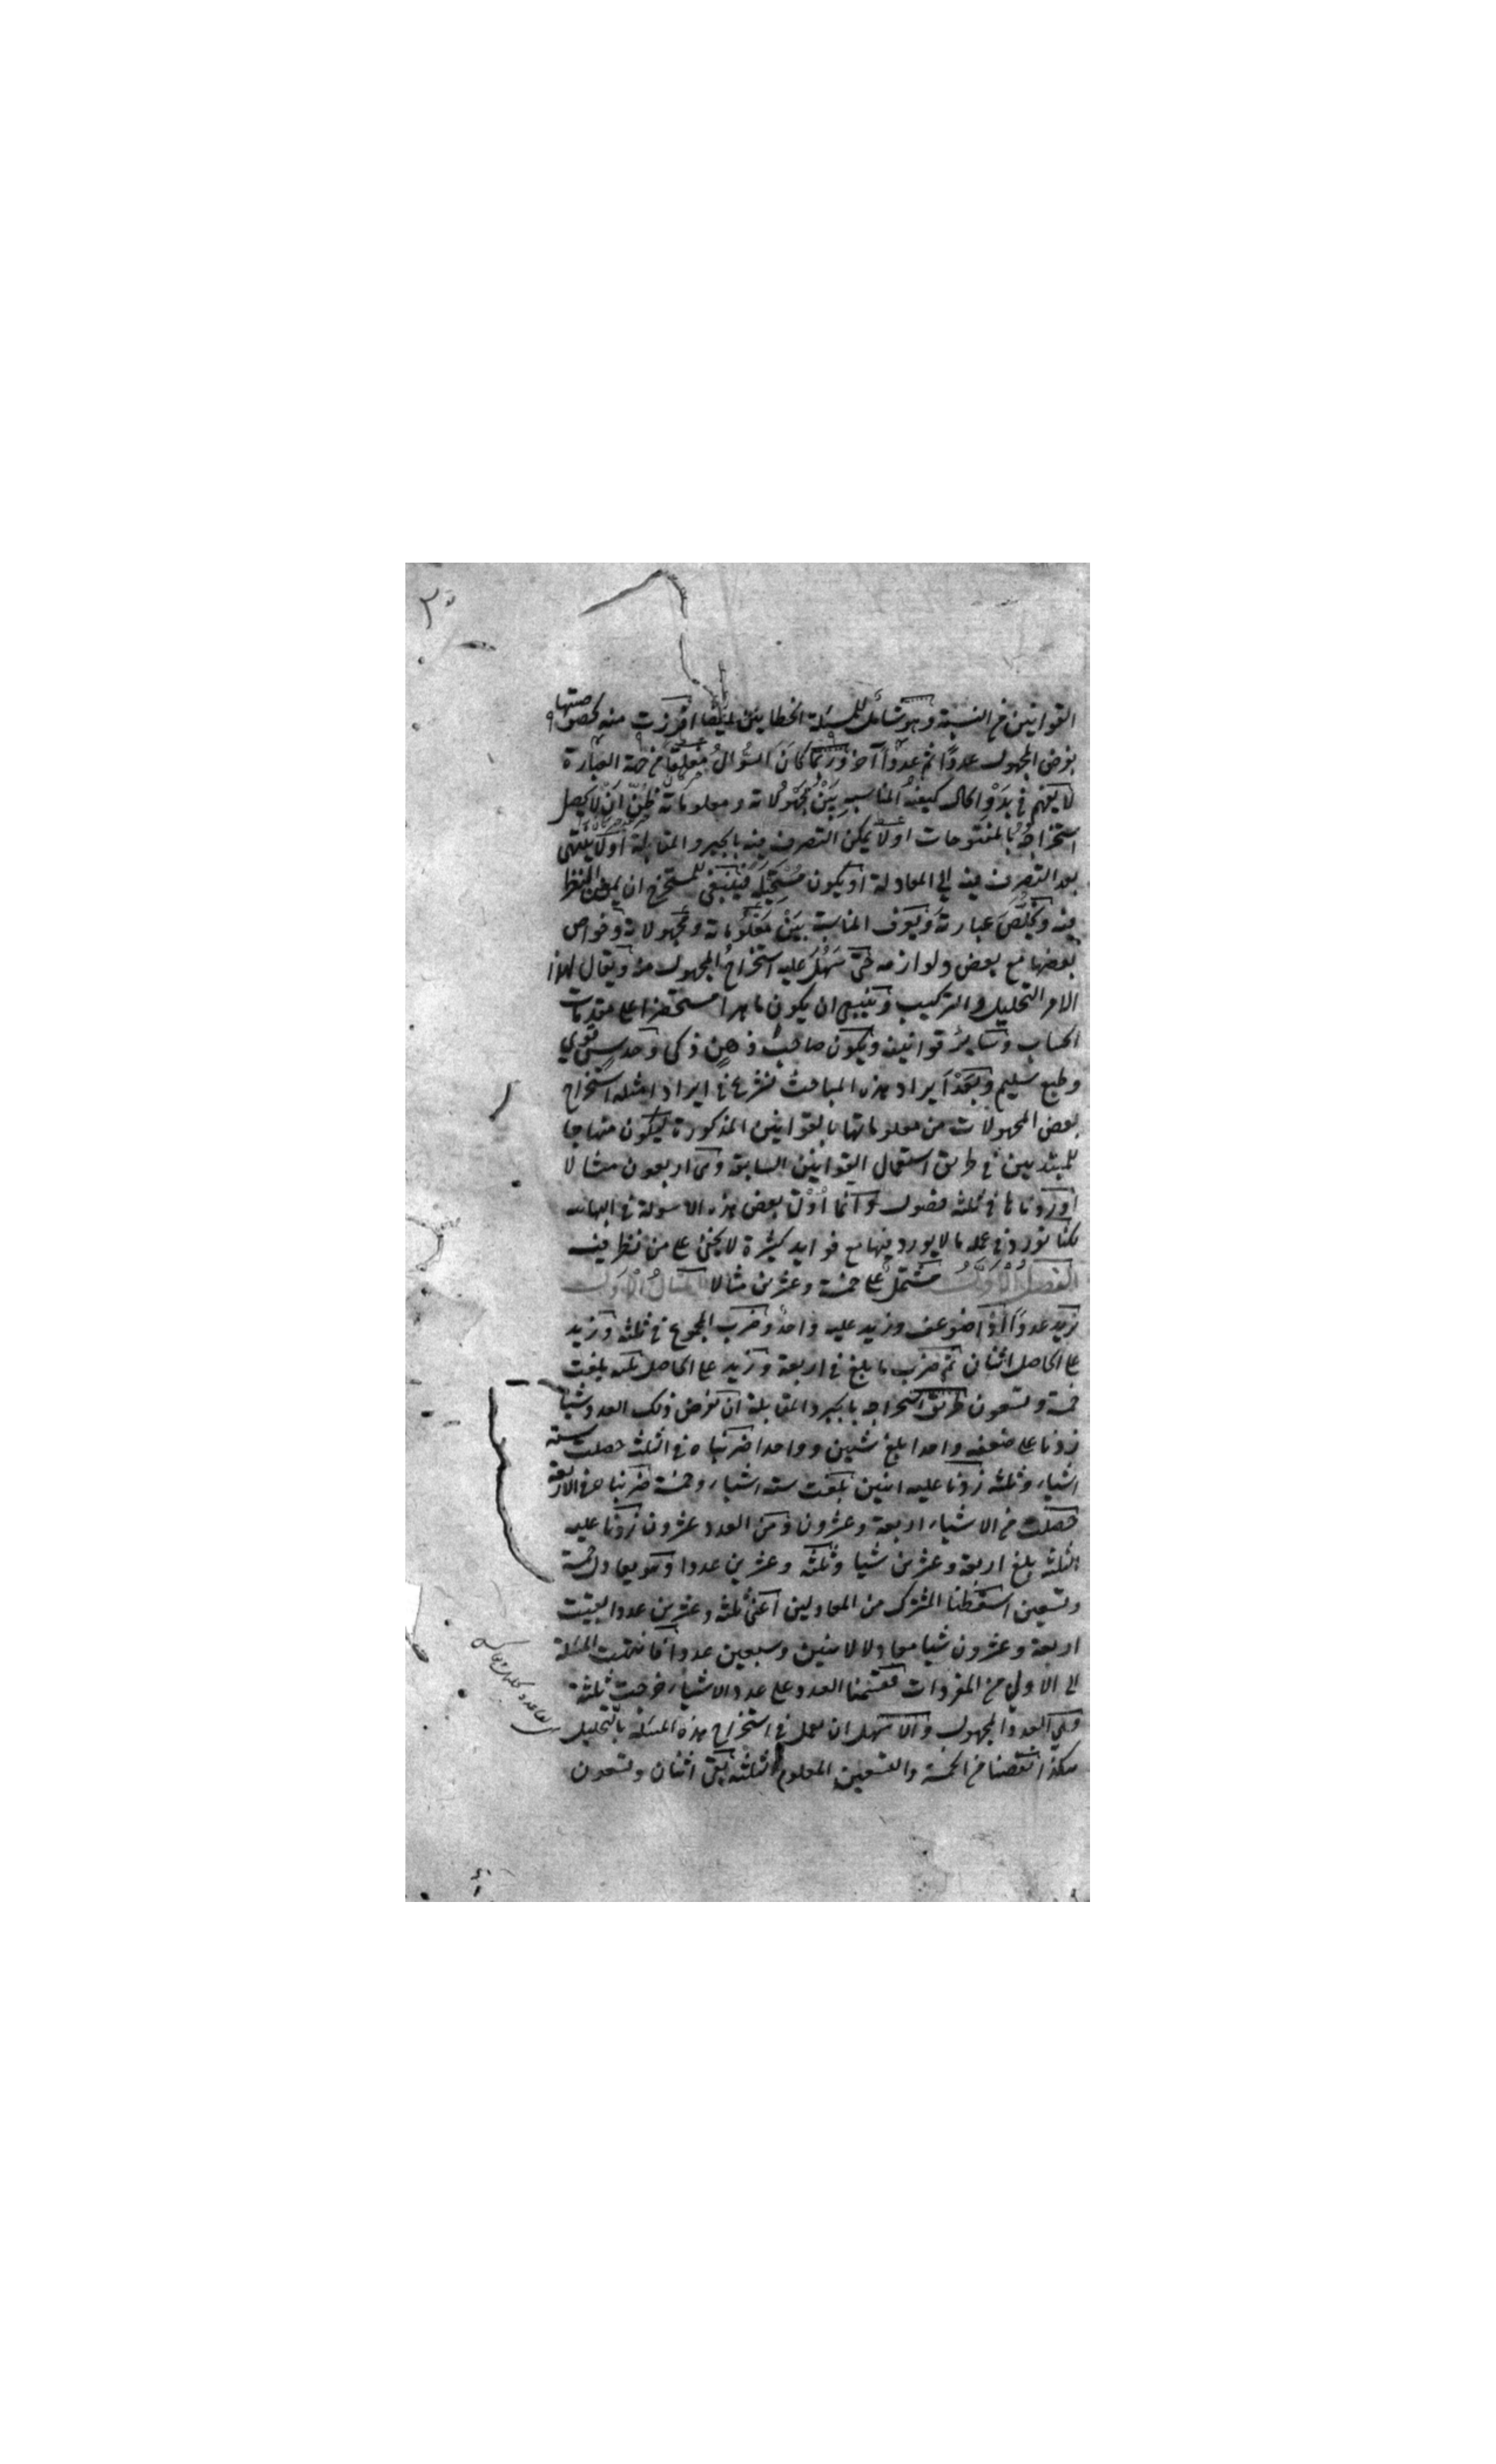 القوانين من النسبة وهو شامل لمسئلة الخطايين ايضا افرزت منه لخصوصيتها
بفرض المجهول عددًا ثم عددًا آخر وربما كان السُّوالُ مغلقًا من جهة العبارة
لا يفهم في بَدْوِ الحال كيفيةُ المناسبةِ بَيْنَ مجهولاته ومعلوماته فظن ان لا يحصل
استخراجه بالمفتوحات اولا يمكن التصرف فيه بالجبر والمقابلة اولا ينتهى
بعد التصرف فيه الى المعادلة او يكون مستحيلة فينبغى للمستخرج ان يمعن النظر
فيه ويلخّصَ عبارته ويعرف المناسبة بَيْنَ معلوماته ومجهولاته وخواص
بعضها مع بعض ولوازمه حتى سَهُلَ عليه استخراجُ المجهول منه ويقال لهذا
الامر التحليل والتركيب وينبغى ان يكون ماهرا مستحضرا على مقدمات
الحساب وساير قوانينه ويكون صاحب ذهنٍ ذكى وحدسٍ قوى
وطبع سليم وبَعْدَ ايراد هذه المباحث نشرع فى ايراد امثلة استخراج
بعض المجهولات من معلوماتها بالقوانين المذكورة ليكون منهاجا
للمبتديين فى طريق استعمال القوانين السابقة وهى اربعون مثالا
اوردناها فى ثلثة فصول وانما اورد بعض هذه الاسولة فى البهائيه
لكنا نورد فى عمله ما لا يورد فيها مع فوايد كثيرة لا يخفى على من نظر فيه
الفصلُ الْأَوَّلُ مشتمل على خمسة وعشرين مثالا المثالُ الْأَوَّل
نريد عددًا اذا ضوعف وزيد عليه واحد وضرب المجموع فى ثلثة وزيد
على الحاصل اثنان ثم ضرب ما بلغ فى اربعة وزيد على الحاصل ثلثة بلغت
خمسة وتسعون طريق استخراجه بالجبر والمقابلة ان نفرض ذلك العدد شيا
زدنا على ضعفه واحدا بلغ شيين وواحدا ضربناه فى الثلثة حصلت ستة
اشياء وثلثة زدنا عليه اثنين بلغت ستة اشياء وخمسة ضربنا ها فى الاربعة
حصلت من الاشياء اربعة وعشرون ومن العدد عشرون زدنا عليه
الثلثة بلغ اربعة وعشرين شيا وثلثة وعشرين عددا وهو يعادل خمسة
وتسعين اسقطنا المشترك من المعادلين اعنى ثلثة وعشرين عددا بقيت
اربعة وعشرون شيا معادلا لاثنين وسبعين عددا فانتهت المسئلة
الى الاولى من المفردات فقسمنا العدد على عدد الاشياء خرجت ثلثة
وهى العدد المجهول والاسهل ان نعمل فى استخراج هذه المسئلة بالتحليل
هكذا نقصنا من الخمسة والتسعين المعلوم الثلثة بقى اثنان وتسعون